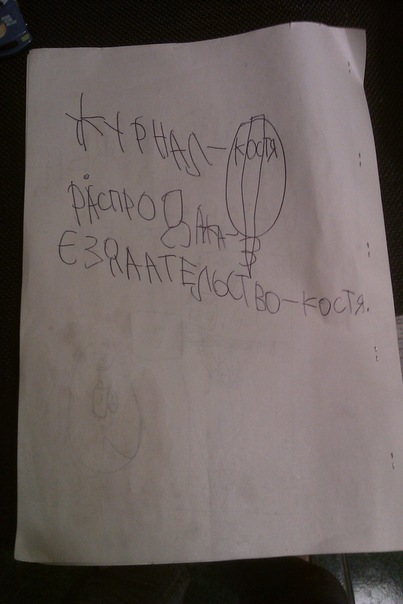 ЖУРНАЛ-КОСТЯ
РАСПРОДАЖА-
ЕЗДААТЕЛЬСТВО-КОСТЯ.